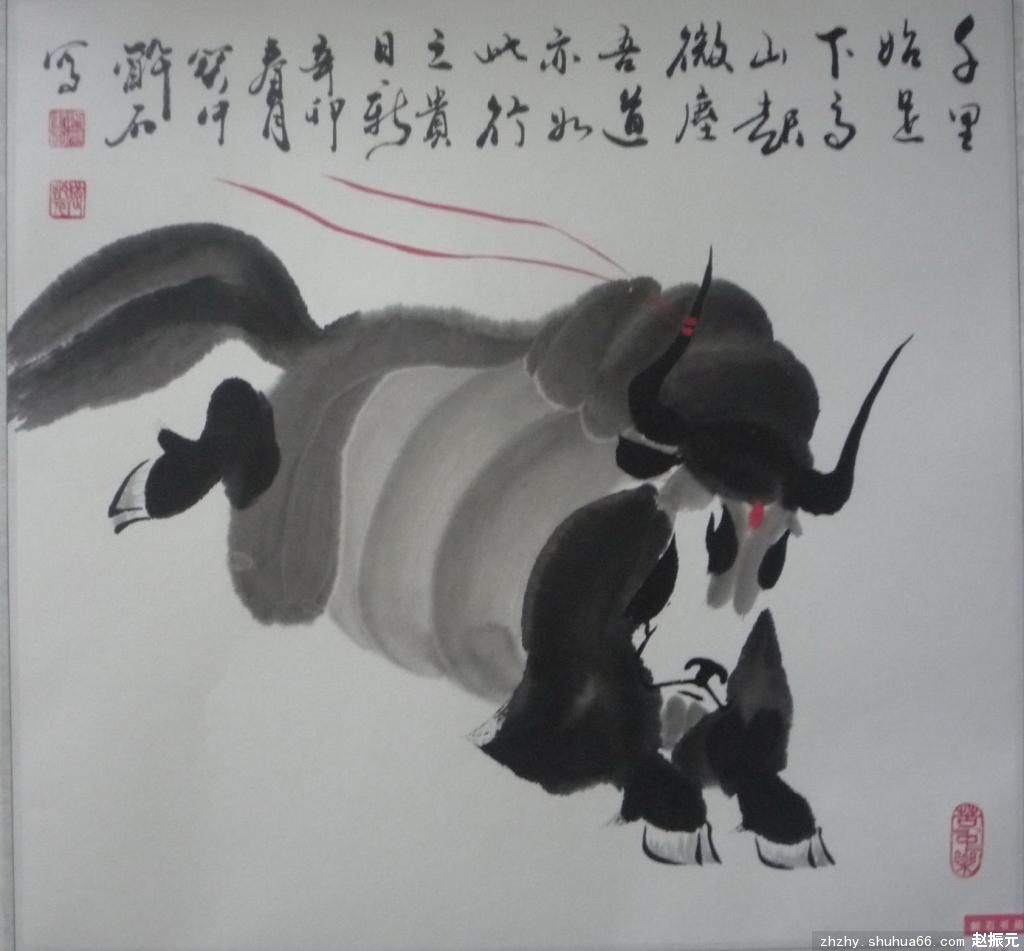 千里
始足
下高
山起
微塵
吾道
亦如
此行
之貴
日新
辛卯
春月
醉石
寫
苦中樂
zhzhy.shuhua66.com 赵振元